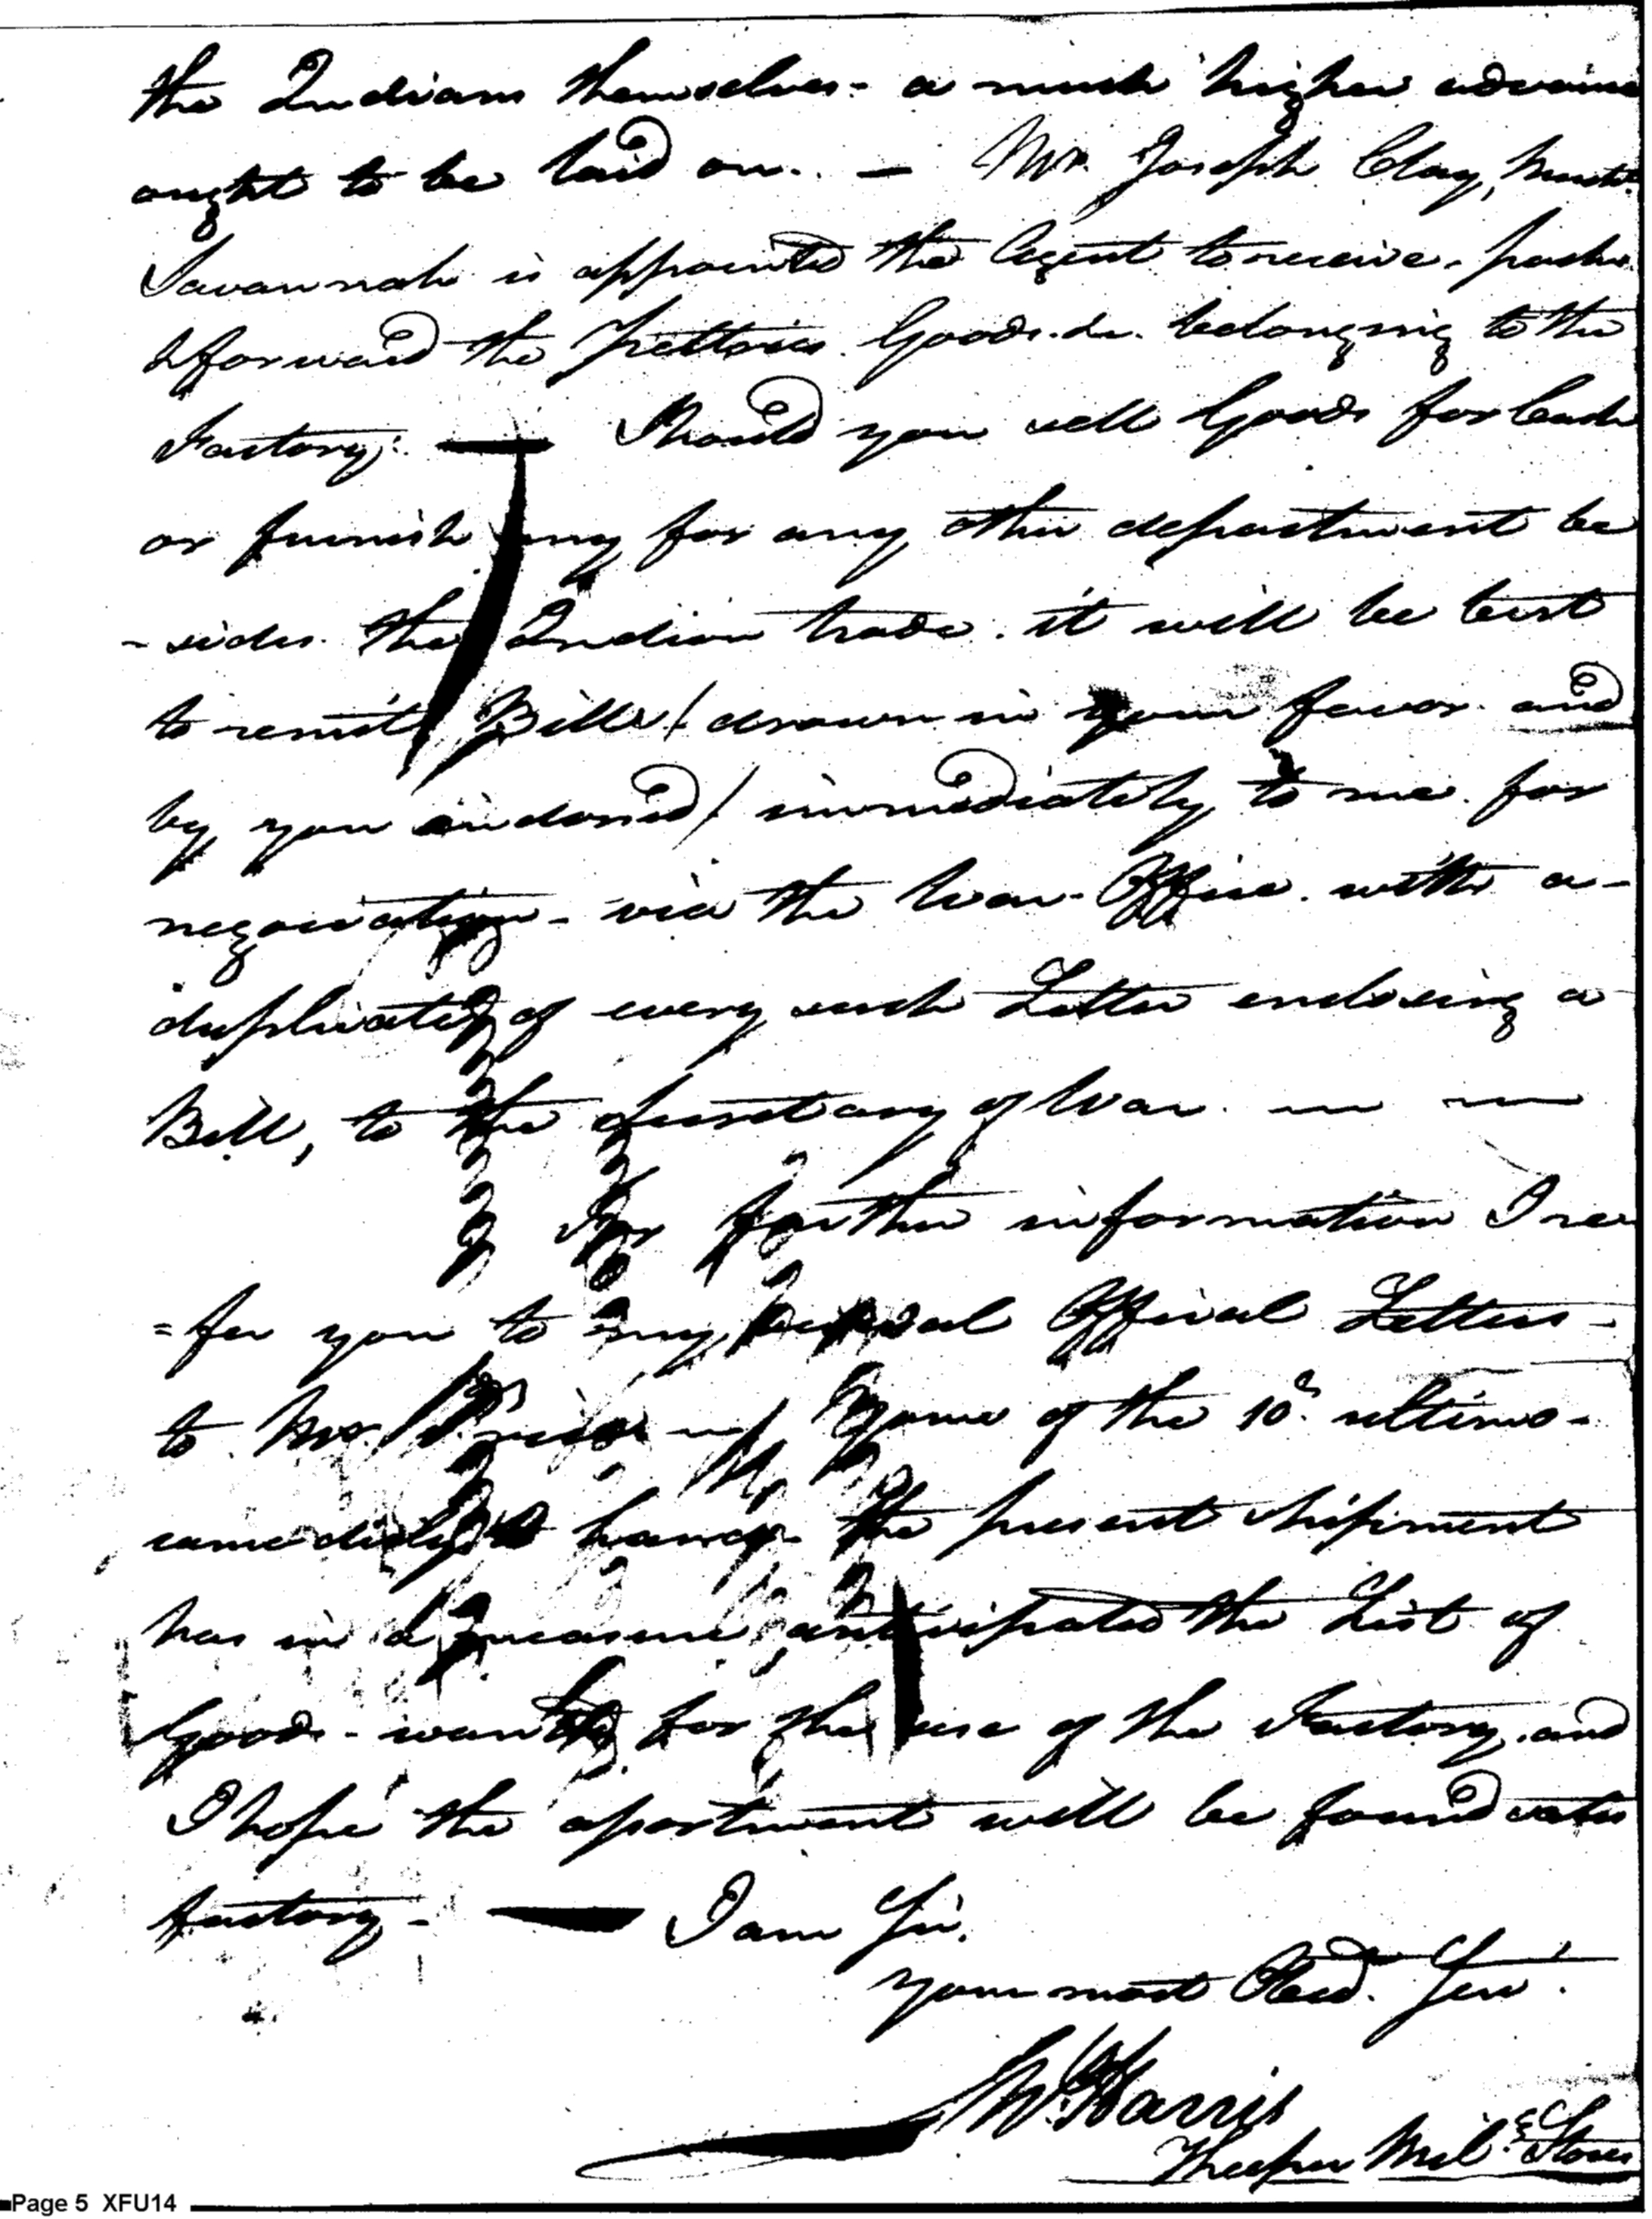 the Indians themselves - a much higher advance
ought to be laid on. - Mr. Joseph Clay,
Savannah is appointed the Agent to receive,
& forward the Peltries Goods &c. belonging to the
Factory: — Should you sell Goods for Cash
or furnish any for any other department be
- sides the Indian trade. it will be best
to remitt Bills / drawn in your favor and
by you indorsed / immediately to me for
negociation - via the War Office. with a -
duplicate of every such Letter enclosing a
Bill, to the Secretary of War. — —
For further information I re
= fer you to my several Official Letters -
to Mr. Price of the 10th ultimo -
came duly to hand - the present shipment
has in a measure anticipated the List of
Goods - wanted for the use of the Factory, and
I hope the apartment will be found satis
factory - — I am Sir,
your most Obed. Serv.
W. Harris
Keeper Mil. Stores
Page 5 XFU14